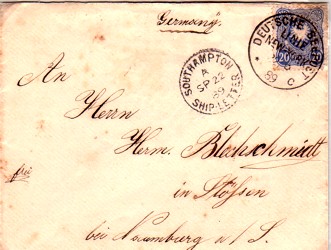 Germany.
DEUTSCHE SEEPOST
LINIE
NEW-YORK
89
C
20
SOUTHAMPTON
A
SP 22
89
SHIP-LETTER
An
Herrn
Herm. Blochschmidt
frei
in Stößen
bei Naumburg a/S.